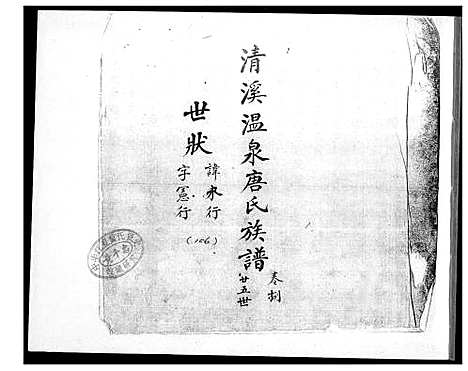 清溪温泉唐氏族譜
卷捌
廿五世
世狀
諱永行
字憲行
(106)